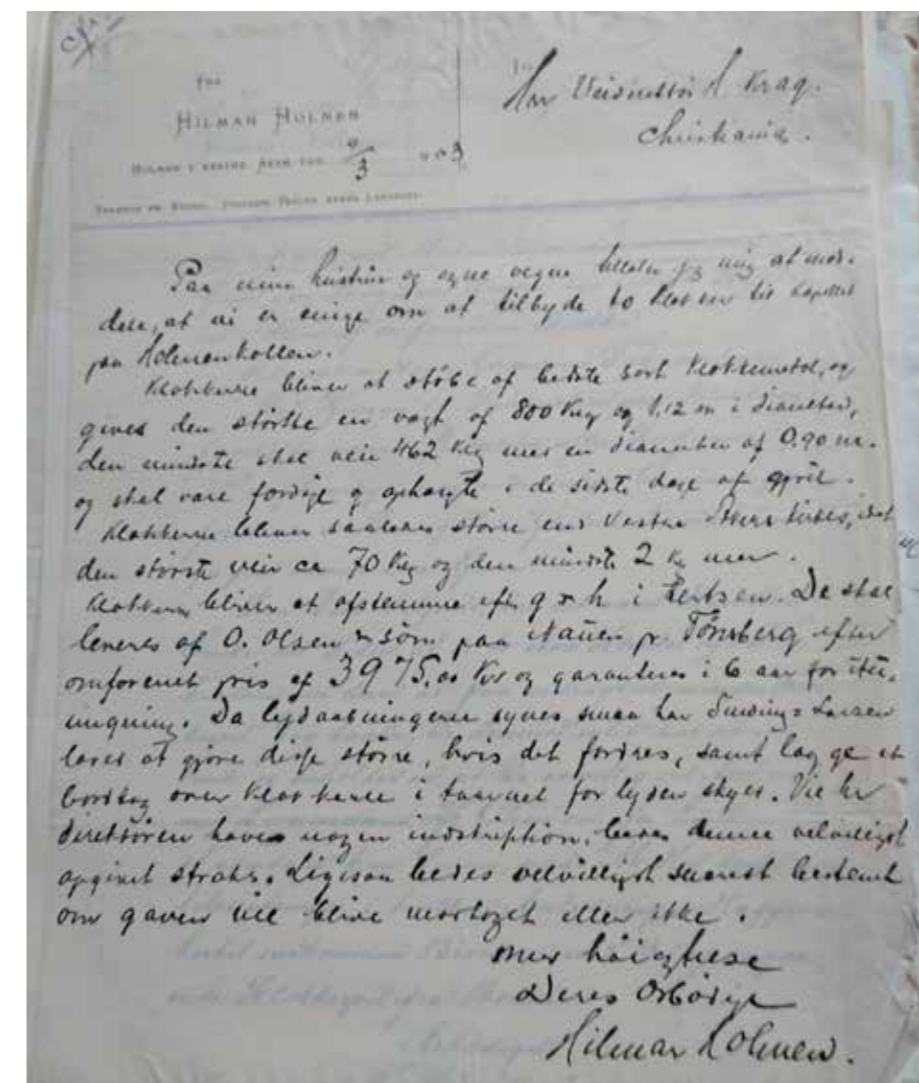 FRA
HILMAR HOLMEN
HOLMEN I VESTRE AKER DEN 9/3 1903
Til
Hrr Veidirektör H. Krag.
Christiania.
Paa min hustrus og egne vegne tillader jeg mig at med-
dele, at vi er enige om at tilbyde to klokker til kapellet
paa Holmenkollen.
Klokkerne bliver at støbe af bedste sort klokkemetal, og
gives den största en vægt af 800 Kg og 1.12 m i diameter,
den mindste skal veie 462 Kg med en diameter af 0.90 m.
og skal være færdige og ophængte i de sidste dage af april.
Klokkerne bliver saaledes större end Vestre Akers kirkes, idet
den störste veier ca 70 Kg og den mindste 2 Kg mer.
Klokkerne bliver at afstemme efter g & h i tertsen. De skal
leveres af O. Olsen & sön paa Nauen pr. Tönsberg efter
omforenet pris af 3975.00 Kr og garanteres i 6 aar for
Da lydaabningerne synes smaa har Sinding-Larsen
lovet at gjöre disse större, hvis det fordres, samt lægge et
bordtag over klokkerne i taarnet for lydens skyld. Vil hr
direktören have nogen indskription, bedes denne velvilligst
opgivet straks. Ligesaa bedes velvilligst snarest bestemt
om gaven vil blive modtaget eller ikke.
med höiagtelse
Deres Ærbödige
Hilmar Holmen.